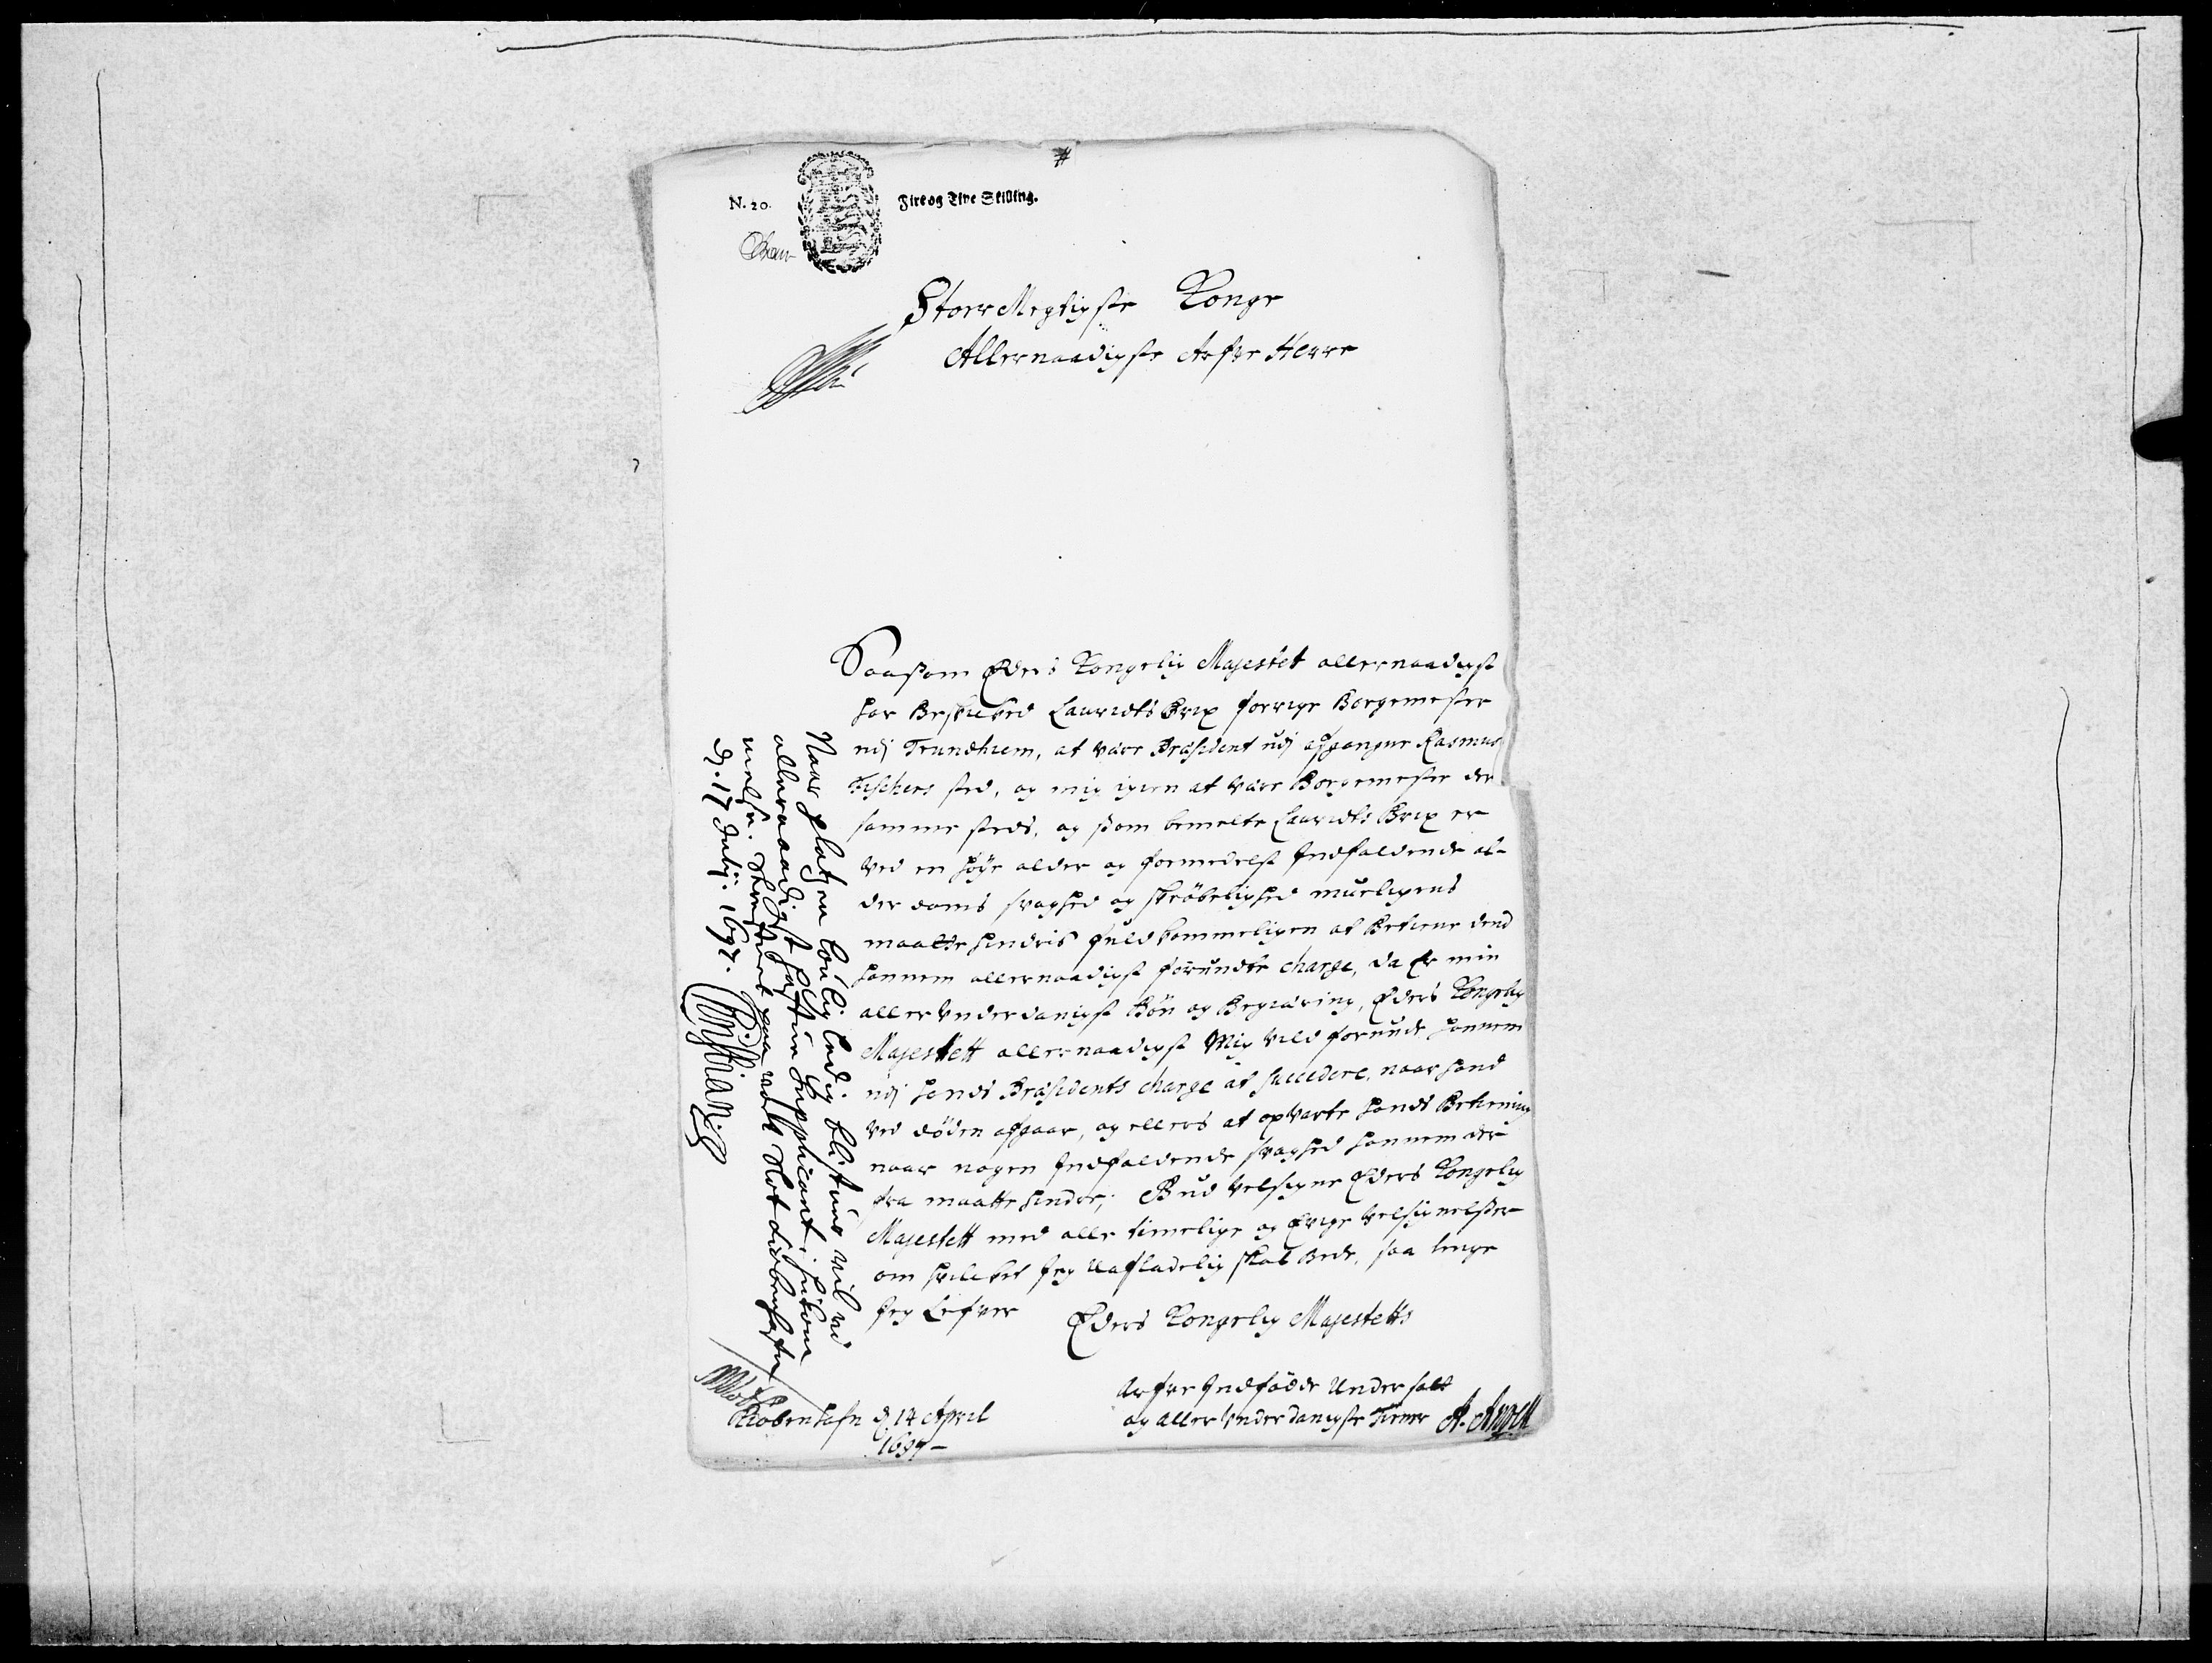 #
N. 20.
Fire og Tive Skilling.
StorrMegtigste Konge
Allernaadigste Arfve Herre
Saasom Eders Kongelig Majestet allernaadigst
har Beskicked Lauridts Brix forrige Borgemester
udj Trundhiem, at være Præsident udj afgangne Rasmus
Fischers sted, og mig igien at være Borgemester der
samme steds, og som bemelte Lauridts Brix er
ved en höye alder og formedelst Indfaldende al-
derdoms svaghed og skröbelighed mueligens
maatte hindris fuldkommeligen at Betiene dend
hannem allernaadigst forundte charge, da Er min
allerunderdanigst Bön og Begiæring, Eders Kongelig
Majestett allernaadigst Mig vild forunde hannem
udj hands Præsidents charge at succedere, naar hand
ved döden afgaar, og ellers at opvarte hands Betiening
naar nogen Indfaldende svaghed hannem der
fra maatte hindre; Gud velsigne Eders Kongelig
Majestett med alle timelige og Evige velsignelsser
om hvilcket Jeg uafladelig skal Bede, saa lenge
Jeg Lefver
Eders Kongelig Majestetts
Arfve Indfödde Undersatt
og aller Underdanigste Tiener A. Angell
Kiöbenhafn d 14 April
1697
Naar pladsen louglig ledig blifuer vil vi
allernaadigst hafue Supplicant; hukom
melse. Skrefuet paa vort Slot Kiøbenhafn
d. 17 Julij. 1697.
Christian